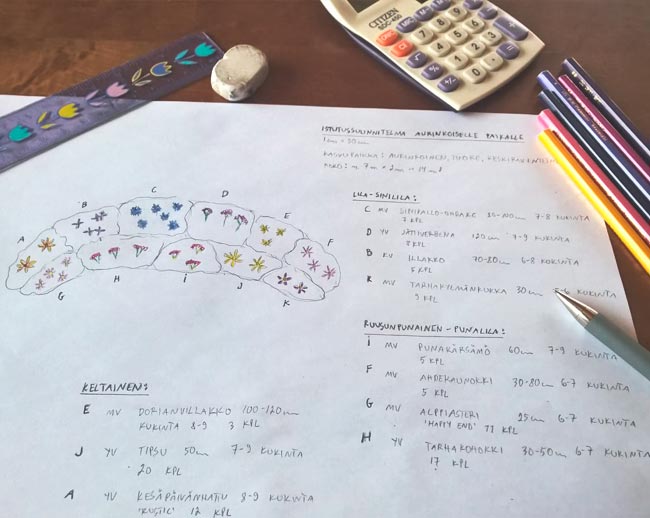 CITIZEN
SDC-450
ISTUTUSSUUNNITELMA AURINKOISELLE PAIKALLE
1cm = 50cm
KASVUPAIKKA: AURINKOINEN, TUORE,
KOKO: n. 7m × 2m = 14 m²
LILA-SINILILA:
C MV SINIPALLO-OHDAKE 7-8 KUKINTA
7 KPL
D YV JÄTTIVERBENA 120cm 7-9 KUKINTA
8 KPL
B KV ILLAKKO 70-80cm 6-8 KUKINTA
5 KPL
K MV 30cm KUKINTA
9 KPL
RUUSUNPUNAINEN - PUNALILA:
I MV PUNAKÄRSÄMÖ 60cm 7-9 KUKINTA
5 KPL
F MV AHDEKAUNOKKI 30-80cm 6-7 KUKINTA
5 KPL
G MV ALPPIASTERI 25cm 6-7 KUKINTA
'HAPPY END' 11 KPL
H YV TARHAKOHOKKI 30-50cm 6-7 KUKINTA
17 KPL
KELTAINEN:
E MV DORIANVILLAKKO 100-120cm
KUKINTA 8-9 3 KPL
J YV TIPSU 50cm 7-9 KUKINTA
20 KPL
A YV KESÄPÄIVÄNHATTU 8-9 KUKINTA
'RUSTIC' 12 KPL
A
B
C
D
E
F
G
H
I
J
K